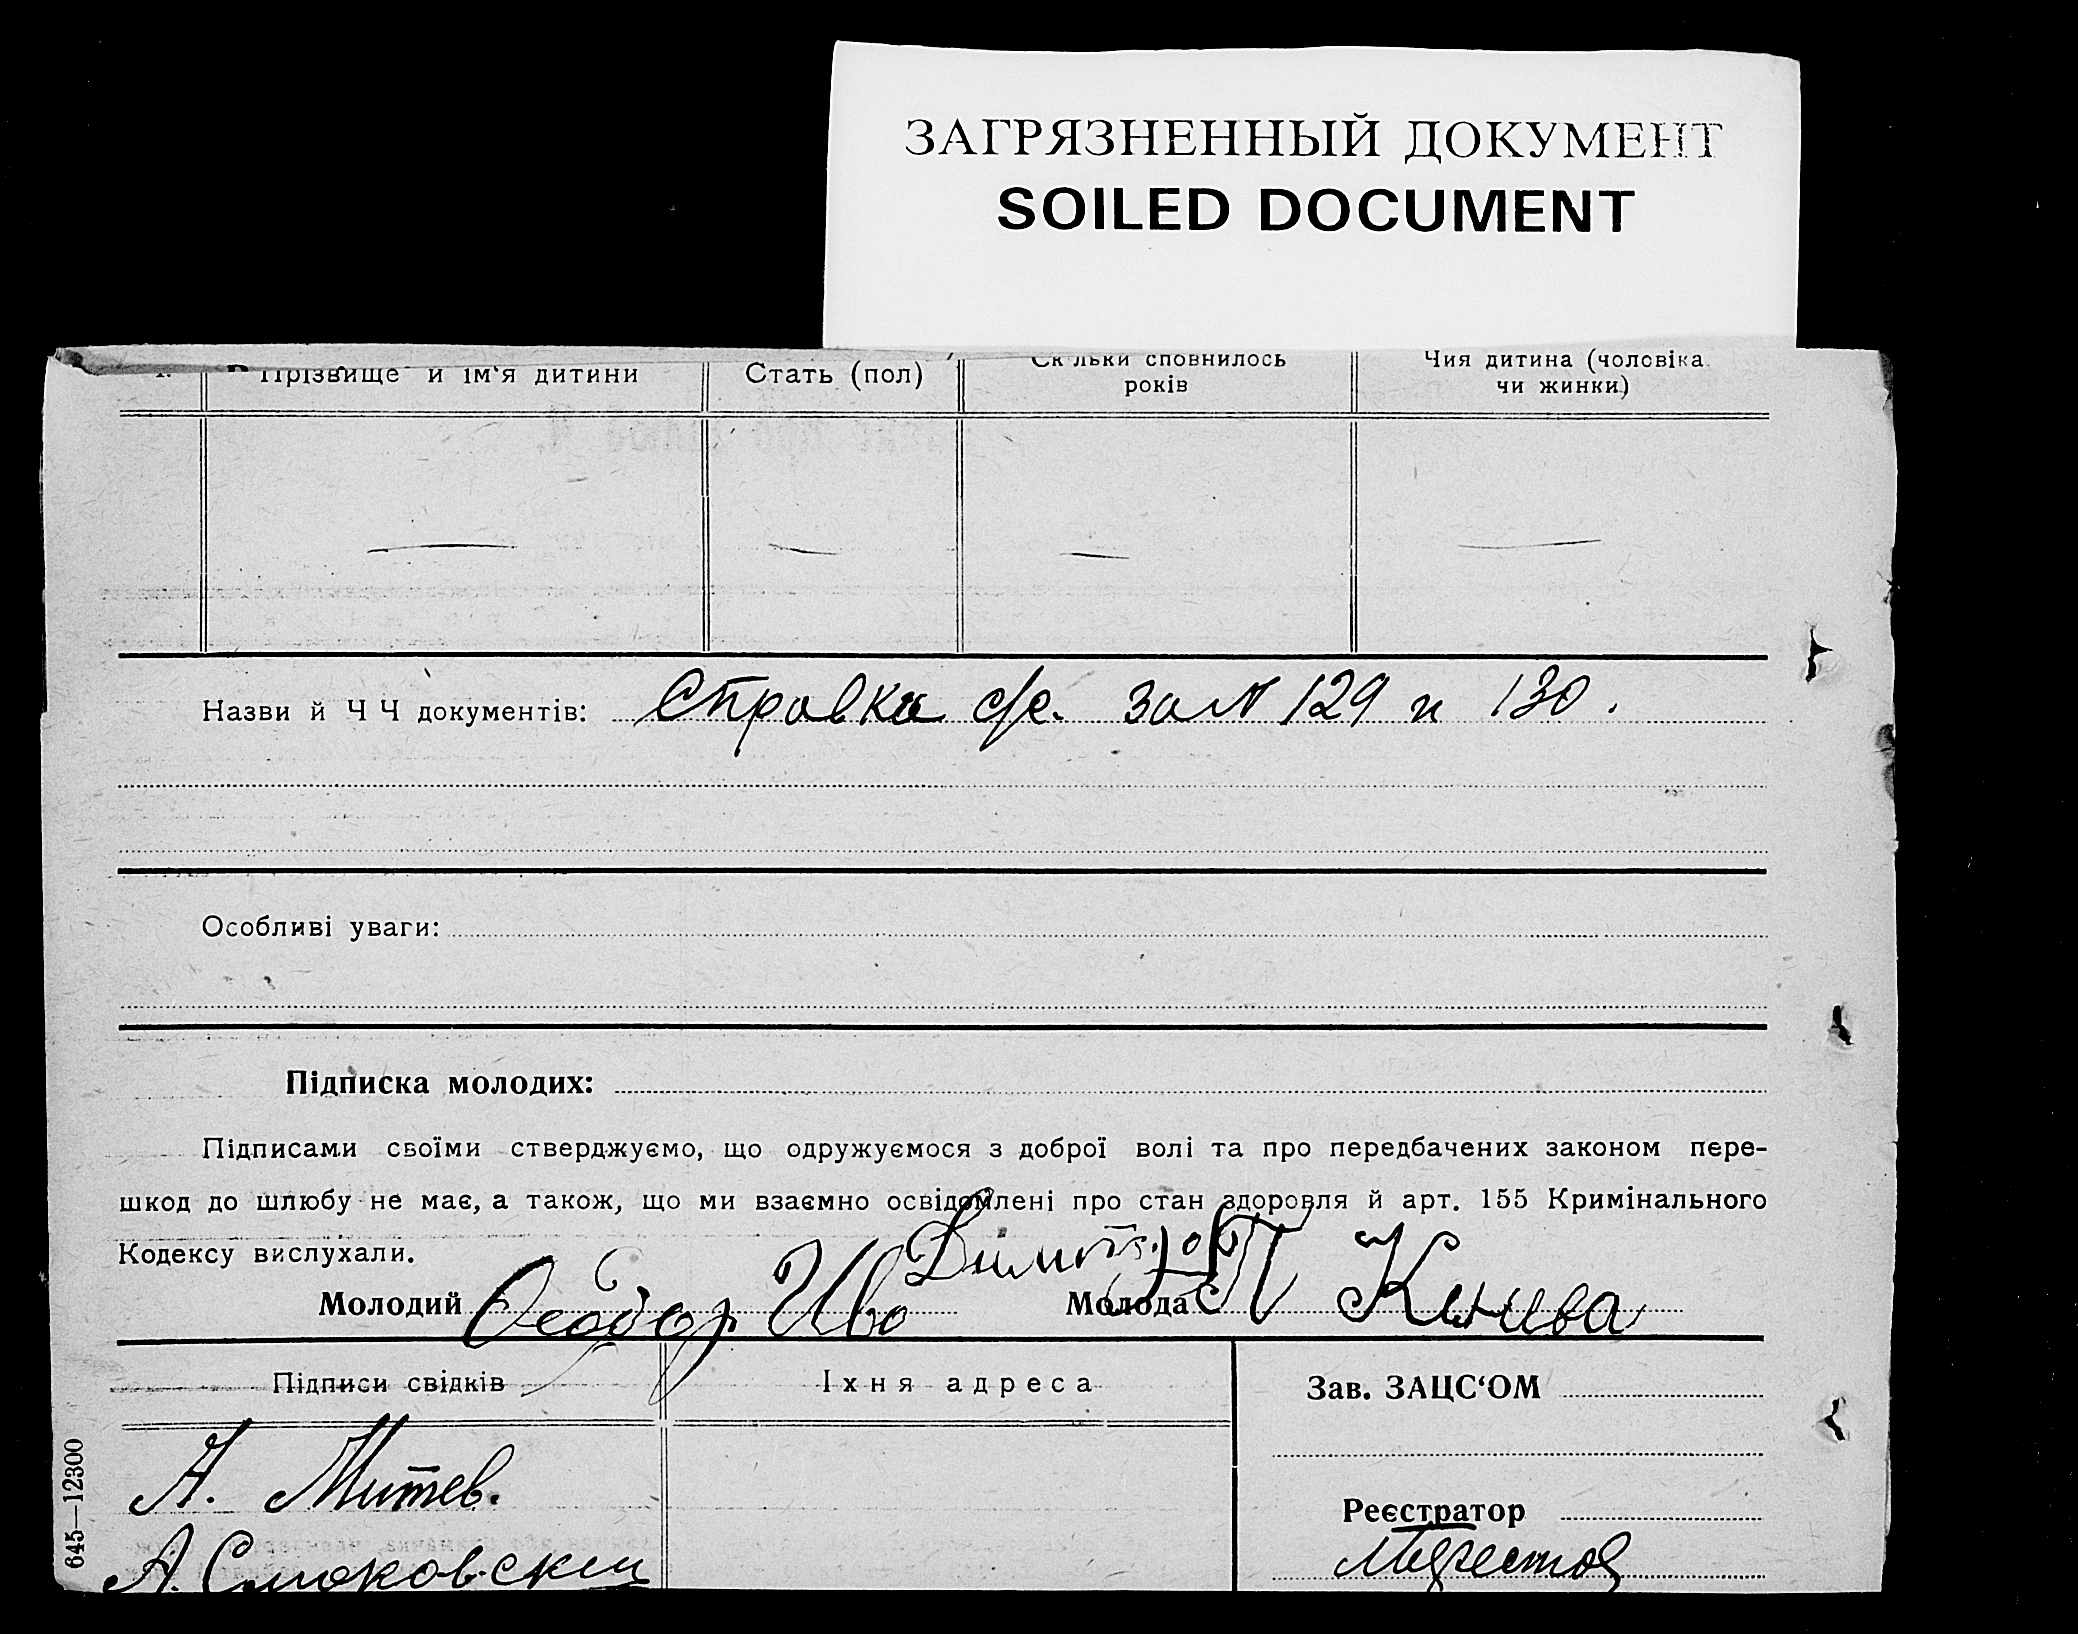 ЗАГРЯЗНЕННЫЙ ДОКУМЕНТ
SOILED DOCUMENT
Прізвище й ім'я дитини
Стать (пол)
Скільки сповнилось
років
Чия дитина (чоловіка
чи жинки)
Назви й Ч Ч документів: Справки с/с. за N 129 и 130.
Особливі уваги:
Підписка молодих:
Підписами своїми стверджуємо, що одружуємося з доброї волі та про передбачених законом пере-
шкод до шлюбу не має, а також, що ми взаємно освідомлені про стан здоровля й арт. 155 Кримінального
Кодексу вислухали.
Молодий Феодор Иво Димитров
Молода П Кенива
Підписи свідків
Їхня адреса
Зав. ЗАЦС'ОМ
А. Митев.
Реєстратор
645—12300